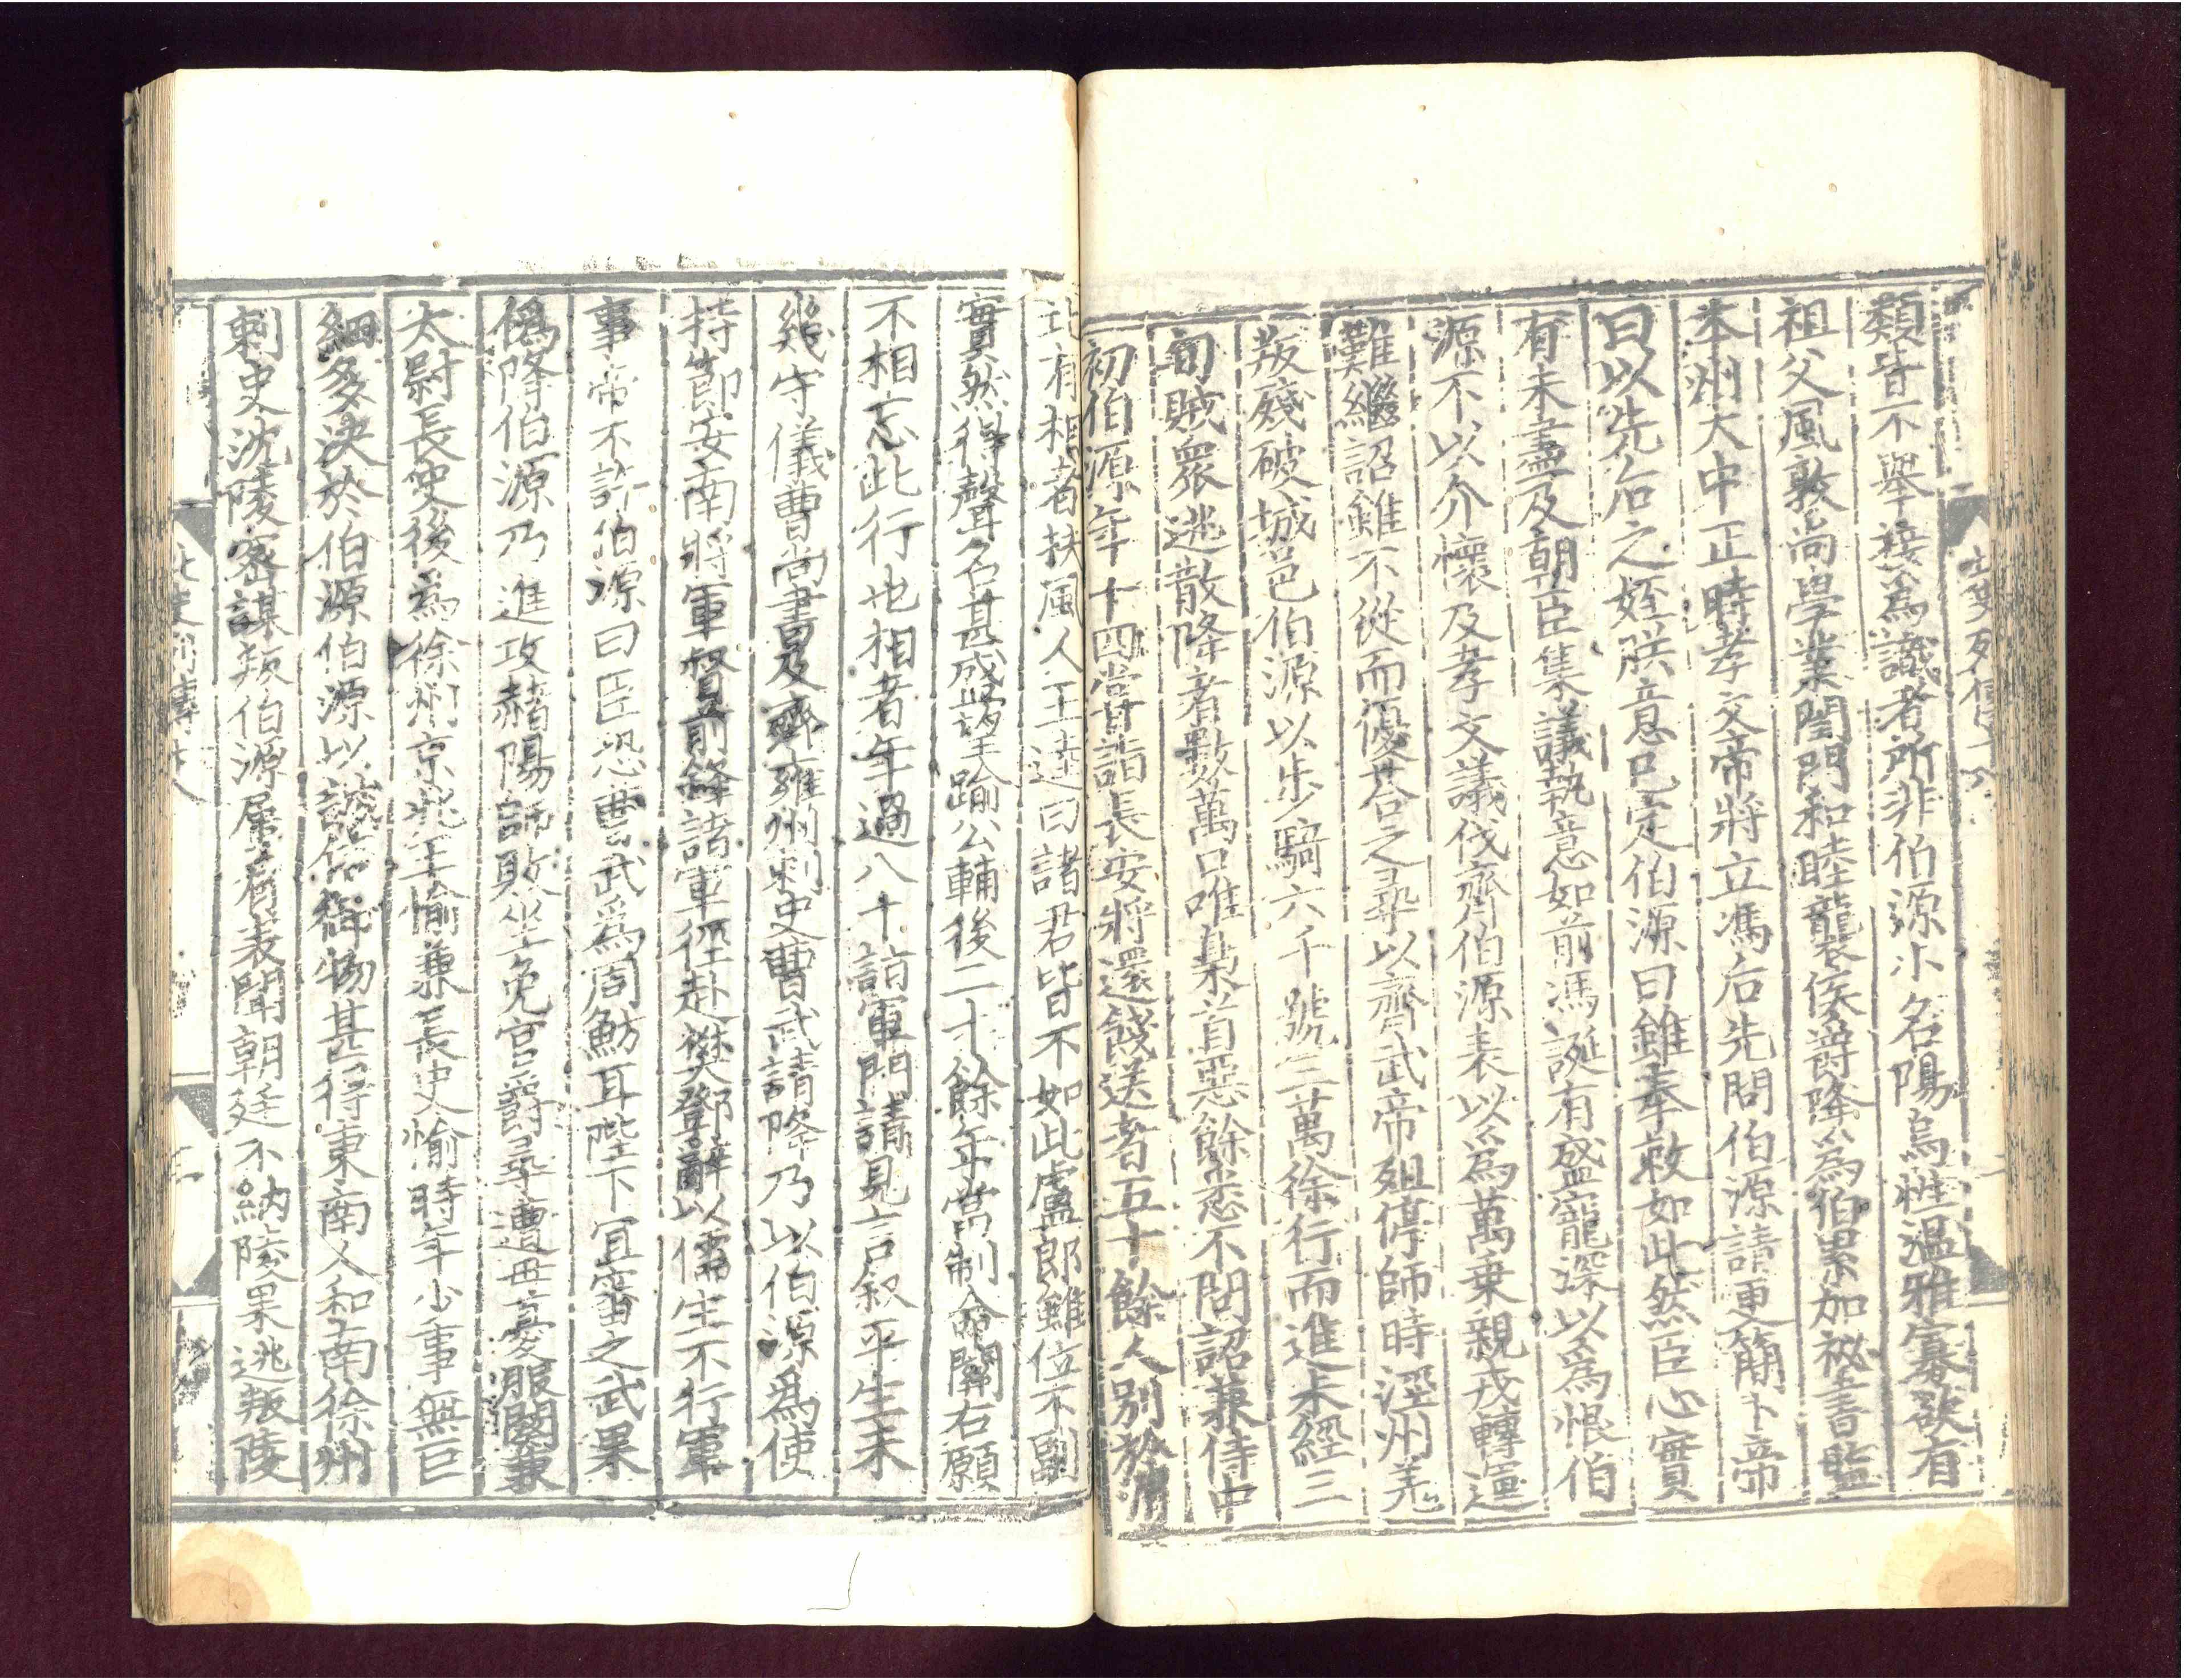 類皆不舉接爲識者所非伯源小名陽烏性温雅寡欲有
祖父風敦尚學業閨門和睦襲侯爵降爲伯累加祕書監
本州大中正時孝文帝將立馮后先問伯源請更簡卜帝
曰以先后之姪朕意已定伯源曰雖奉敕如此然臣心實
有未盡及朝臣集議執意如前馮誕有盛寵深以爲恨伯
源不以介懷及孝文議伐齊伯源表以爲萬乗親戎轉運
難繼詔雖不從而優荅之尋以齊武帝殂停師時涇州羌
叛殘破城邑伯源以步騎六千號三萬徐行而進未經三
旬賊衆逃散降者數萬口唯梟首惡餘悉不問詔兼侍中
初伯源年十四嘗詣長安將還餞送者五十餘人別於渭
北有相者扶風人王逵曰諸君皆不如此盧郎雖位不副
實然得聲名甚盛望踰公輔後二十餘年當制命關右願
不相忘此行也相者年過八十詣軍門請見言叙平生未
幾守儀曹尚書及齊雍州刺史曹武請降乃以伯源爲使
持節安南將軍督前鋒諸軍徑赴樊鄧辭以儒生不行軍
事帝不許伯源曰臣恐曹武爲周魴耳陛下宜審之武果
僞降伯源乃進攻赭陽師敗坐免官爵尋遭母憂服闋兼
太尉長史後爲徐州京兆王愉兼長史愉時年少事無巨
細多決於伯源伯源以誠信御物甚得東南人和南徐州
刺史沈陵密謀叛伯源屢有表聞朝廷不納陵果逃叛陵